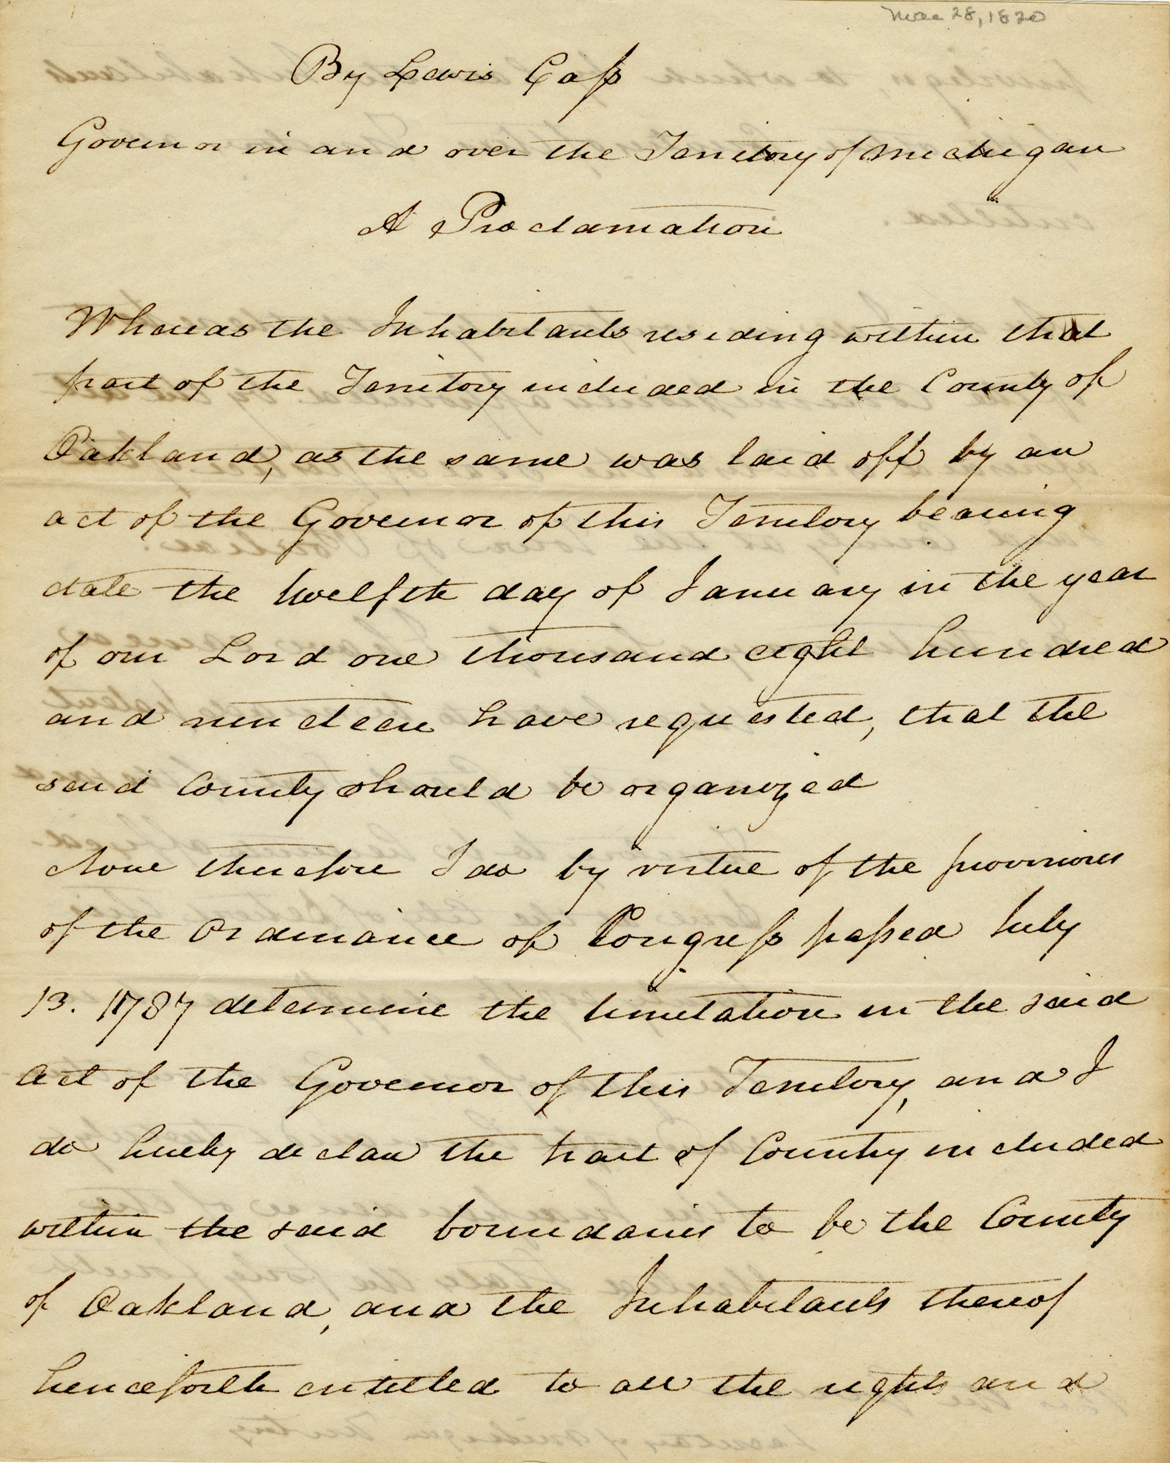 Mar 28, 1820
By Lewis Cass
Governor in and over the Territory of Michigan
A Proclamation
Whereas the Inhabitants residing within that
part of the Territory included in the County of
Oakland, as the same was laid off by an
act of the Governor of this Territory bearing
date the twelfth day of January in the year
of our Lord one thousand eight hundred
and nineteen have requested, that the
said County should be organized
Now therefore I do by virtue of the provisions
of the Ordinance of Congress passed July
13. 1787 determine the limitation in the said
Act of the Governor of this Territory, and I
do hereby declare the tract of Country included
within the said boundaries to be the County
of Oakland, and the Inhabitants thereof
henceforth entitled to all the rights and